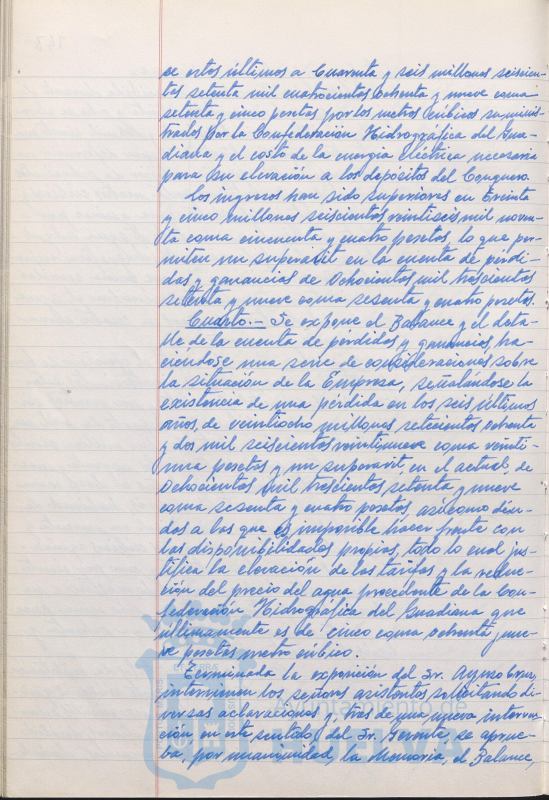 se estos últimos a Cuarenta y seis millones seiscien-
tas setenta mil cuatrocientas Ochenta y nueve coma
setenta y cinco pesetas por los metros cúbicos suminis-
trados por la Confederación Hidrográfica del Gua-
diana y el costo de la energía eléctrica necesaria
para su elevación a los depósitos del Conquero.
Los ingresos han sido superiores en Treinta
y cinco millones seiscientas veintiseis mil noven-
ta coma cincuenta y cuatro pesetas, lo que per-
miten un superavit en la cuenta de perdi-
das y ganancias de Ochocientas mil trescientas
setenta y nueve coma sesenta y cuatro pesetas.
Cuarto.- Se expone el Balance y el deta-
lle de la cuenta de pérdidas y ganancias, ha-
ciendose una serie de consideraciones sobre
la situación de la Empresa, señalándose la
existencia de una pérdida en los seis últimos
años, de veintiocho millones setecientas Ochenta
y dos mil seiscientas veintinueve coma veinti-
una pesetas y un superavit, en el actual, de
Ochocientas mil trescientas setenta y nueve
coma sesenta y cuatro pesetas, así como deu-
das a las que es imposible hacer frente con
las disponibilidades propias, todo lo cual jus-
tifica la elevación de las tarifas y la reduc-
ción del precio del agua procedente de la Con-
federación Hidrográfica del Guadiana que
últimamente es de cinco coma Ochenta y nue-
ve pesetas metro cúbico.
Terminada la exposición del Sr.
intervienen los señores asistentes solicitando di-
versas aclaraciones y, tras de una nueva interven-
ción en este sentido, del Sr. Gerente, se aprue-
ba, por unanimidad, la Memoria, el Balance,
Ayuntamiento de
HUELVA